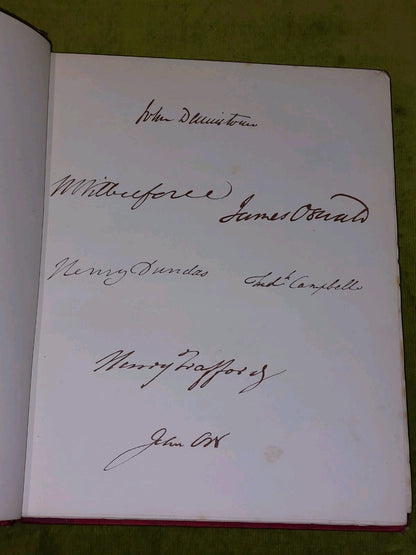 John Dennistoun
W Wilberforce
James Oswald
Henry Dundas
Fredk Campbell
Henry Trafford
Jean Orr